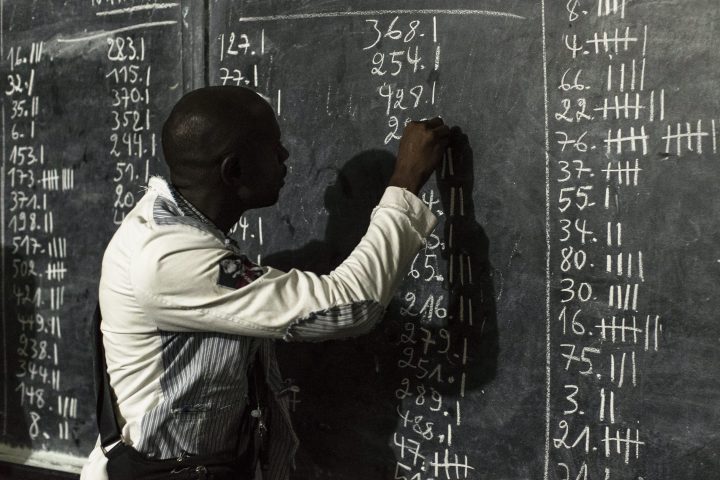 16. |||
32. |
35. ||
6. |
153. |
173. 卌 ||
371. |
198. ||
517. ||||
502. 卌
421. ||
449. ||
238. |
344. ||
148. ||||
8. ||
283. |
115. |
370. |
352. |
244. |
51. |
20.
127. |
77. |
368. |
254. |
428. |
2
65. |||
216. ||
279. |
289. |
488. |
47. 卌
8. |||
4. 卌 |
66. ||||
22. 卌 ||
76. 卌 卌 |
37. 卌
55. |
34. ||
80. ||||
30. ||||
16. 卌 ||
75. |||
3. ||
21. 卌